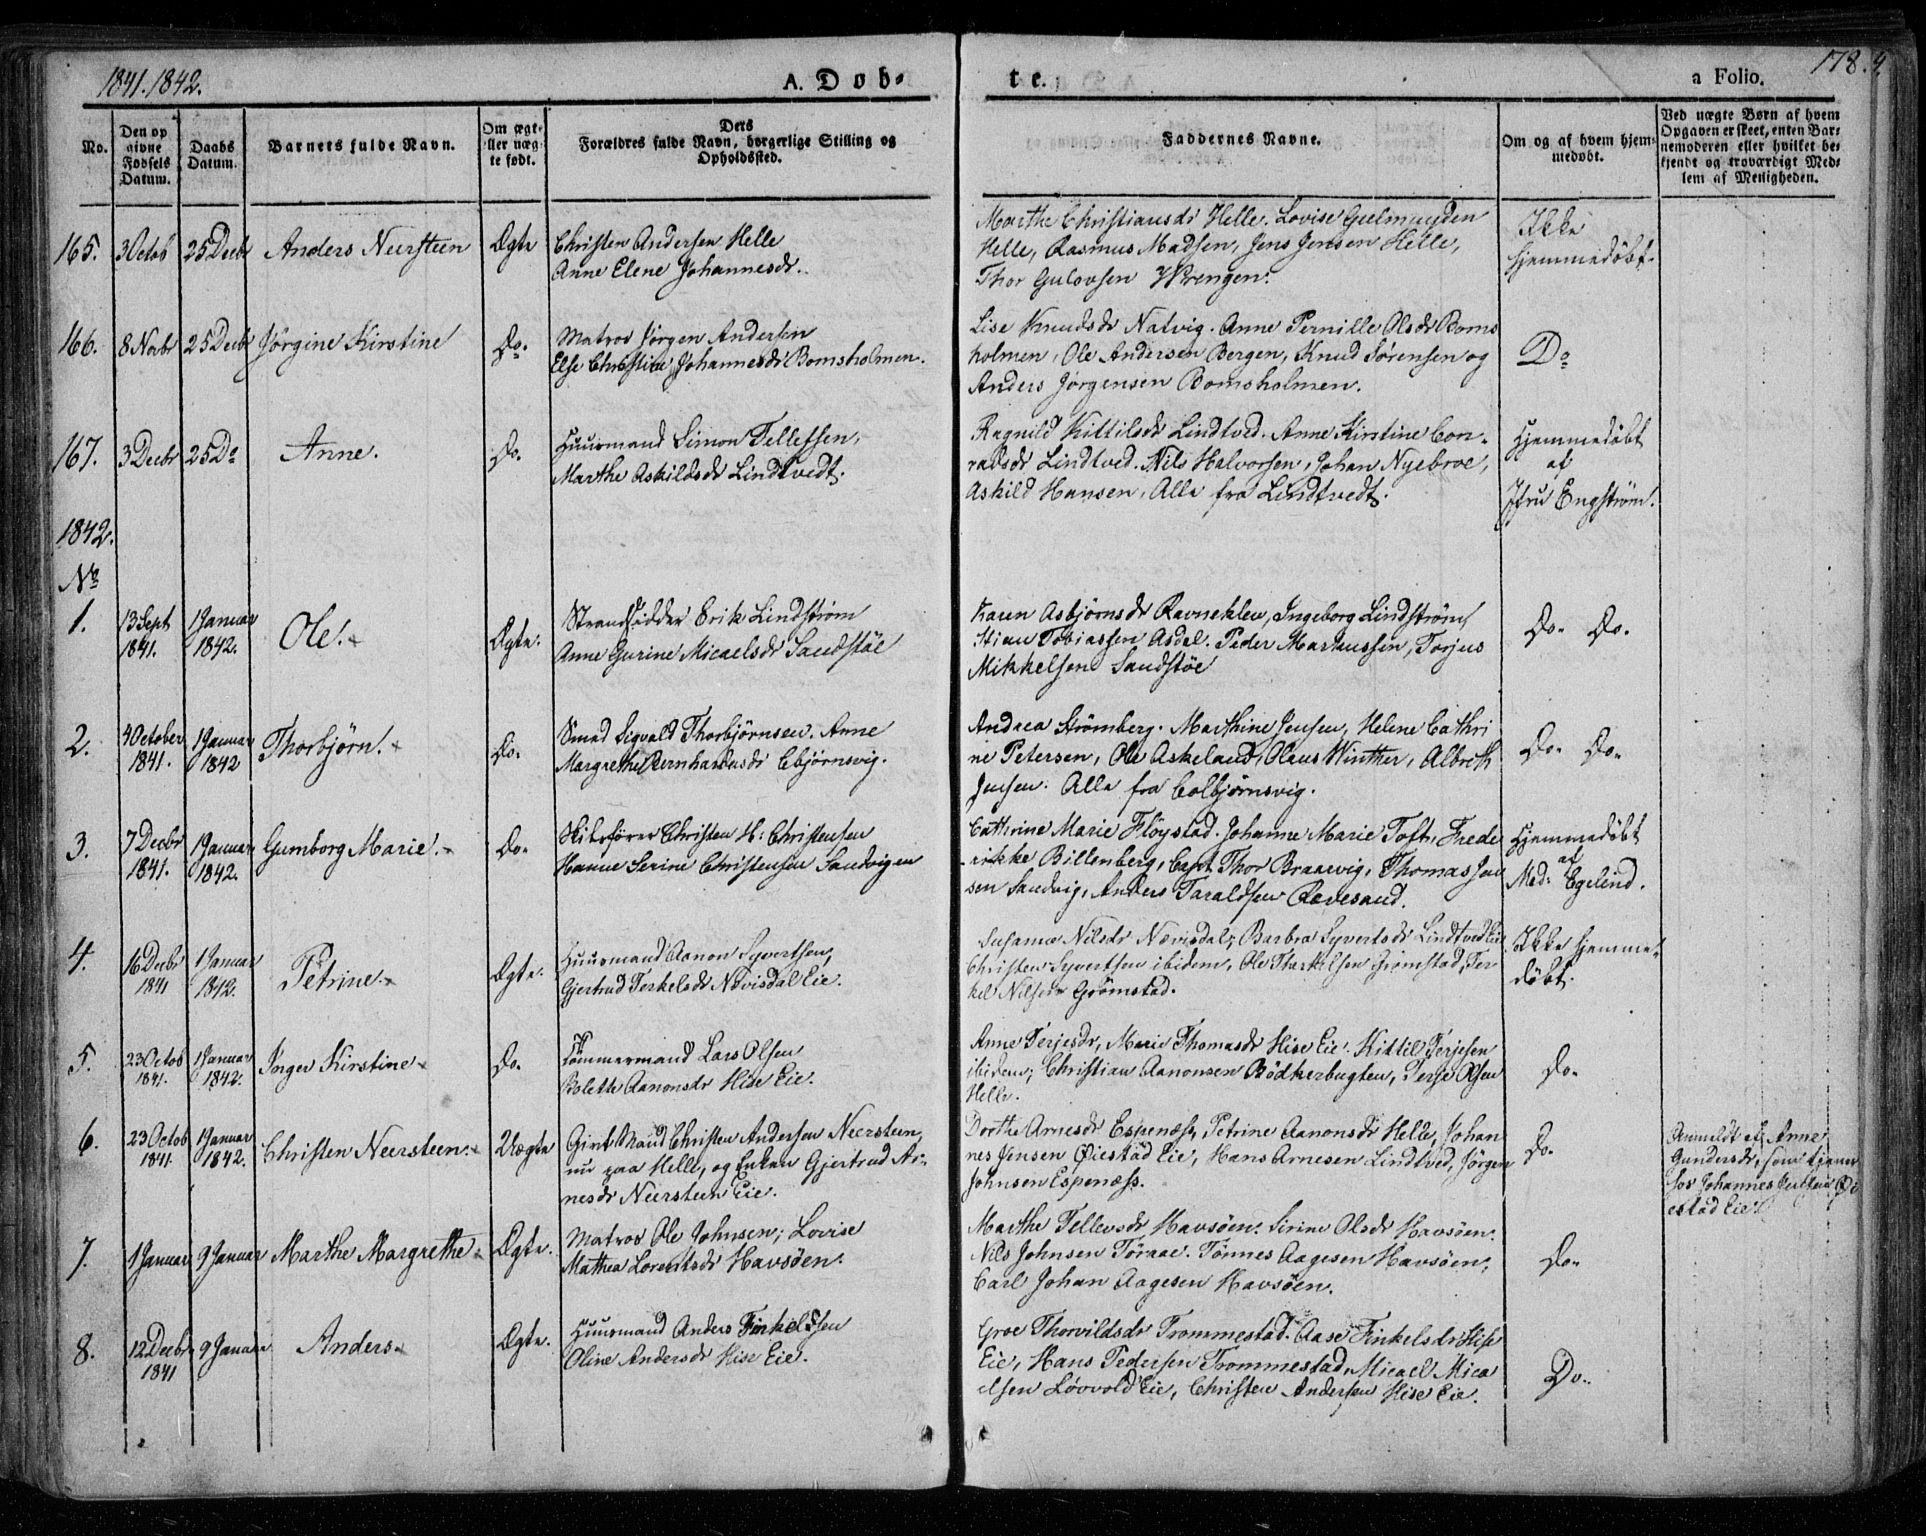 1841. 1842.
A. Döb-
te.
a Folio.
178.
No.
Den op
givne
Födsels
Datum.
Daabs
Datum.
Barnets fulde Navn.
Om ægte
eller uæg-
te født.
Dets
Forældres fulde Navn, borgerlige Stilling og
Opholdssted.
Faddernes Navne.
Om og af hvem hjem-
medøbt.
Ved uægte Børn af hvem
Opgaven er skeet, enten Bar-
nemoderen eller hvilket be-
kjendt og troværdigt Med-
lem af Menigheden.
165. 3 Octob 25 Decbr Anders Neersteen Ægte
Christen Andersen Helle
Anne Elene Johannesdr.
Marthe Christiansdr Helle. Lovise Gulmuyden
Helle, Rasmus Madsen, Jens Jensen Helle,
Thor Gulovsen Wrengen.
Ikke
hjemmedøbt.
166. 8 Novbr 25 Decbr Jørgine Kirstine Do.
Matros Jørgen Andersen
Else Christine Johannesdr Bomsholmen.
Lise Knudsdr Natvig. Anne Pernille Olsdr Boms
holmen, Ole Andersen Bergen, Knud Sørensen og
Anders Jørgensen Bomsholmen.
Do
167. 3 Decbr 25 Do Anne. Do.
Huusmand Simon Tellefsen,
Marthe Askildsdr Lindtvedt.
Ragnild Kittilsdr Lindtved. Anne Kirstine Con-
radsdr Lindtved. Nils Halvorsen, Johan Nyebroe,
Askild Hansen, Alle fra Lindtvedt.
Hjemmedøbt
af
Jfru Engstrøm.
1842.
No
1. 13 Sept 1841. 1 Januar 1842. Ole. Ægte.
Strandsidder Erik Lindstrøm
Anne Gurine Micaelsdr Sandstøe
Karen Asbjørnsdr Ravneklev, Ingeborg Lindstrøm,
Stian Tobiassen Asdal. Peder Markussen, Torjus
Mikkelsen Sandstøe
Do. Do.
2. 4 October 1841. 1 Januar 1842 Thorbjørn. Do.
Smed Sigvald Thorbjørnsen. Anne
Margrethe Bernhardusdr Cbjørnsvig.
Andrea Strømberg. Marthine Jensen, Helene Cathri
ne Petersen, Ole Askeland, Olaus Winther, Albreth
Jensen. Alle fra Colbjørnsvig.
Do. Do.
3. 7 Decbr 1841. 1 Januar 1842. Gumborg Marie. Do.
Skibsfører Christen H: Christensen
Hanne Serine Christensen Sandvigen
Cathrine Marie Fløystad. Johanne Marie Toft, Frede
rikke Billenberg, Capt Thor Braaevig, Thomas Jen
sen Sandvig, Anders Taraldsen Revesand.
Hjemmedøbt
af
Mad: Egelund.
4. 16 Decbr 1841 1 Januar 1842. Petrine. Ægte.
Huusmand Aanon Syvertsen,
Gjertrud Terkelsdr Nævisdal Eie.
Susanne Nilsdr Nævisdal, Barbra Syvertsdr Lindtved Eie
Christen Syvertsen ibidem, Ole Therkelsen Grømstad, Ter
kel Nilsen Grømstad.
Ikke hjemme-
døbt.
5. 23 Octob 1841. 1 Januar 1842. Inger Kirstine Do.
Tømmermand Lars Olsen
Bolette Aanonsdr Hise Eie.
Anne Terjesdr, Marie Thomasdr Hise Eie. Kittil Terjesen
ibidem; Christian Aanonsen Bødkerbugten, Terje Olsen
Helle.
Do.
6. 23 Octob 1841. 1 Januar 1842. Christen Neersteen. Uægte
Gift Mand Christen Andersen Neersteen,
nu paa Helle, og Enken Gjertrud Ar-
nesdr Neersteen Eie.
Dorthe Arnesdr Espenæss, Petrine Aanonsdr Helle, Johan
nes Jensen Øiestad Eie, Hans Arnesen Lindtved, Jørgen
Johnsen Espenæss.
Do.
Anmeldt af Anne
Gundersdr, som tjener
hos Johannes Jensen Øi
estad Eie.
7. 1 Januar 9 Januar Marthe Margrethe Ægte.
Matros Ole Johnsen; Lovise
Mathea Lorentsdr Havsøen.
Marthe Tellevsdr Havsøen. Sirine Olsdr Havsøen.
Nils Johnsen Toraae. Tønnes Aagesen Havsøen,
Carl Johan Aagesen Havsøen.
Do.
8. 12 Decbr 1841 9 Januar Anders Ægte.
Huusmand Anders Finkelssen
Oline Andersdr Hise Eie.
Groe Thorvildsdr Trommestad. Aase Finkelsdr Hise
Eie, Hans Pedersen Trommestad, Micael Mica
elsen Løvvold Eie, Christen Andersen Hise Eie.
Do.